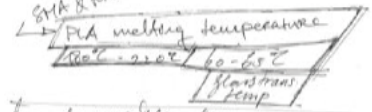 SMA &
PLA melting temperature
180°C - 220°C 60-65°C
glass trans.
temp